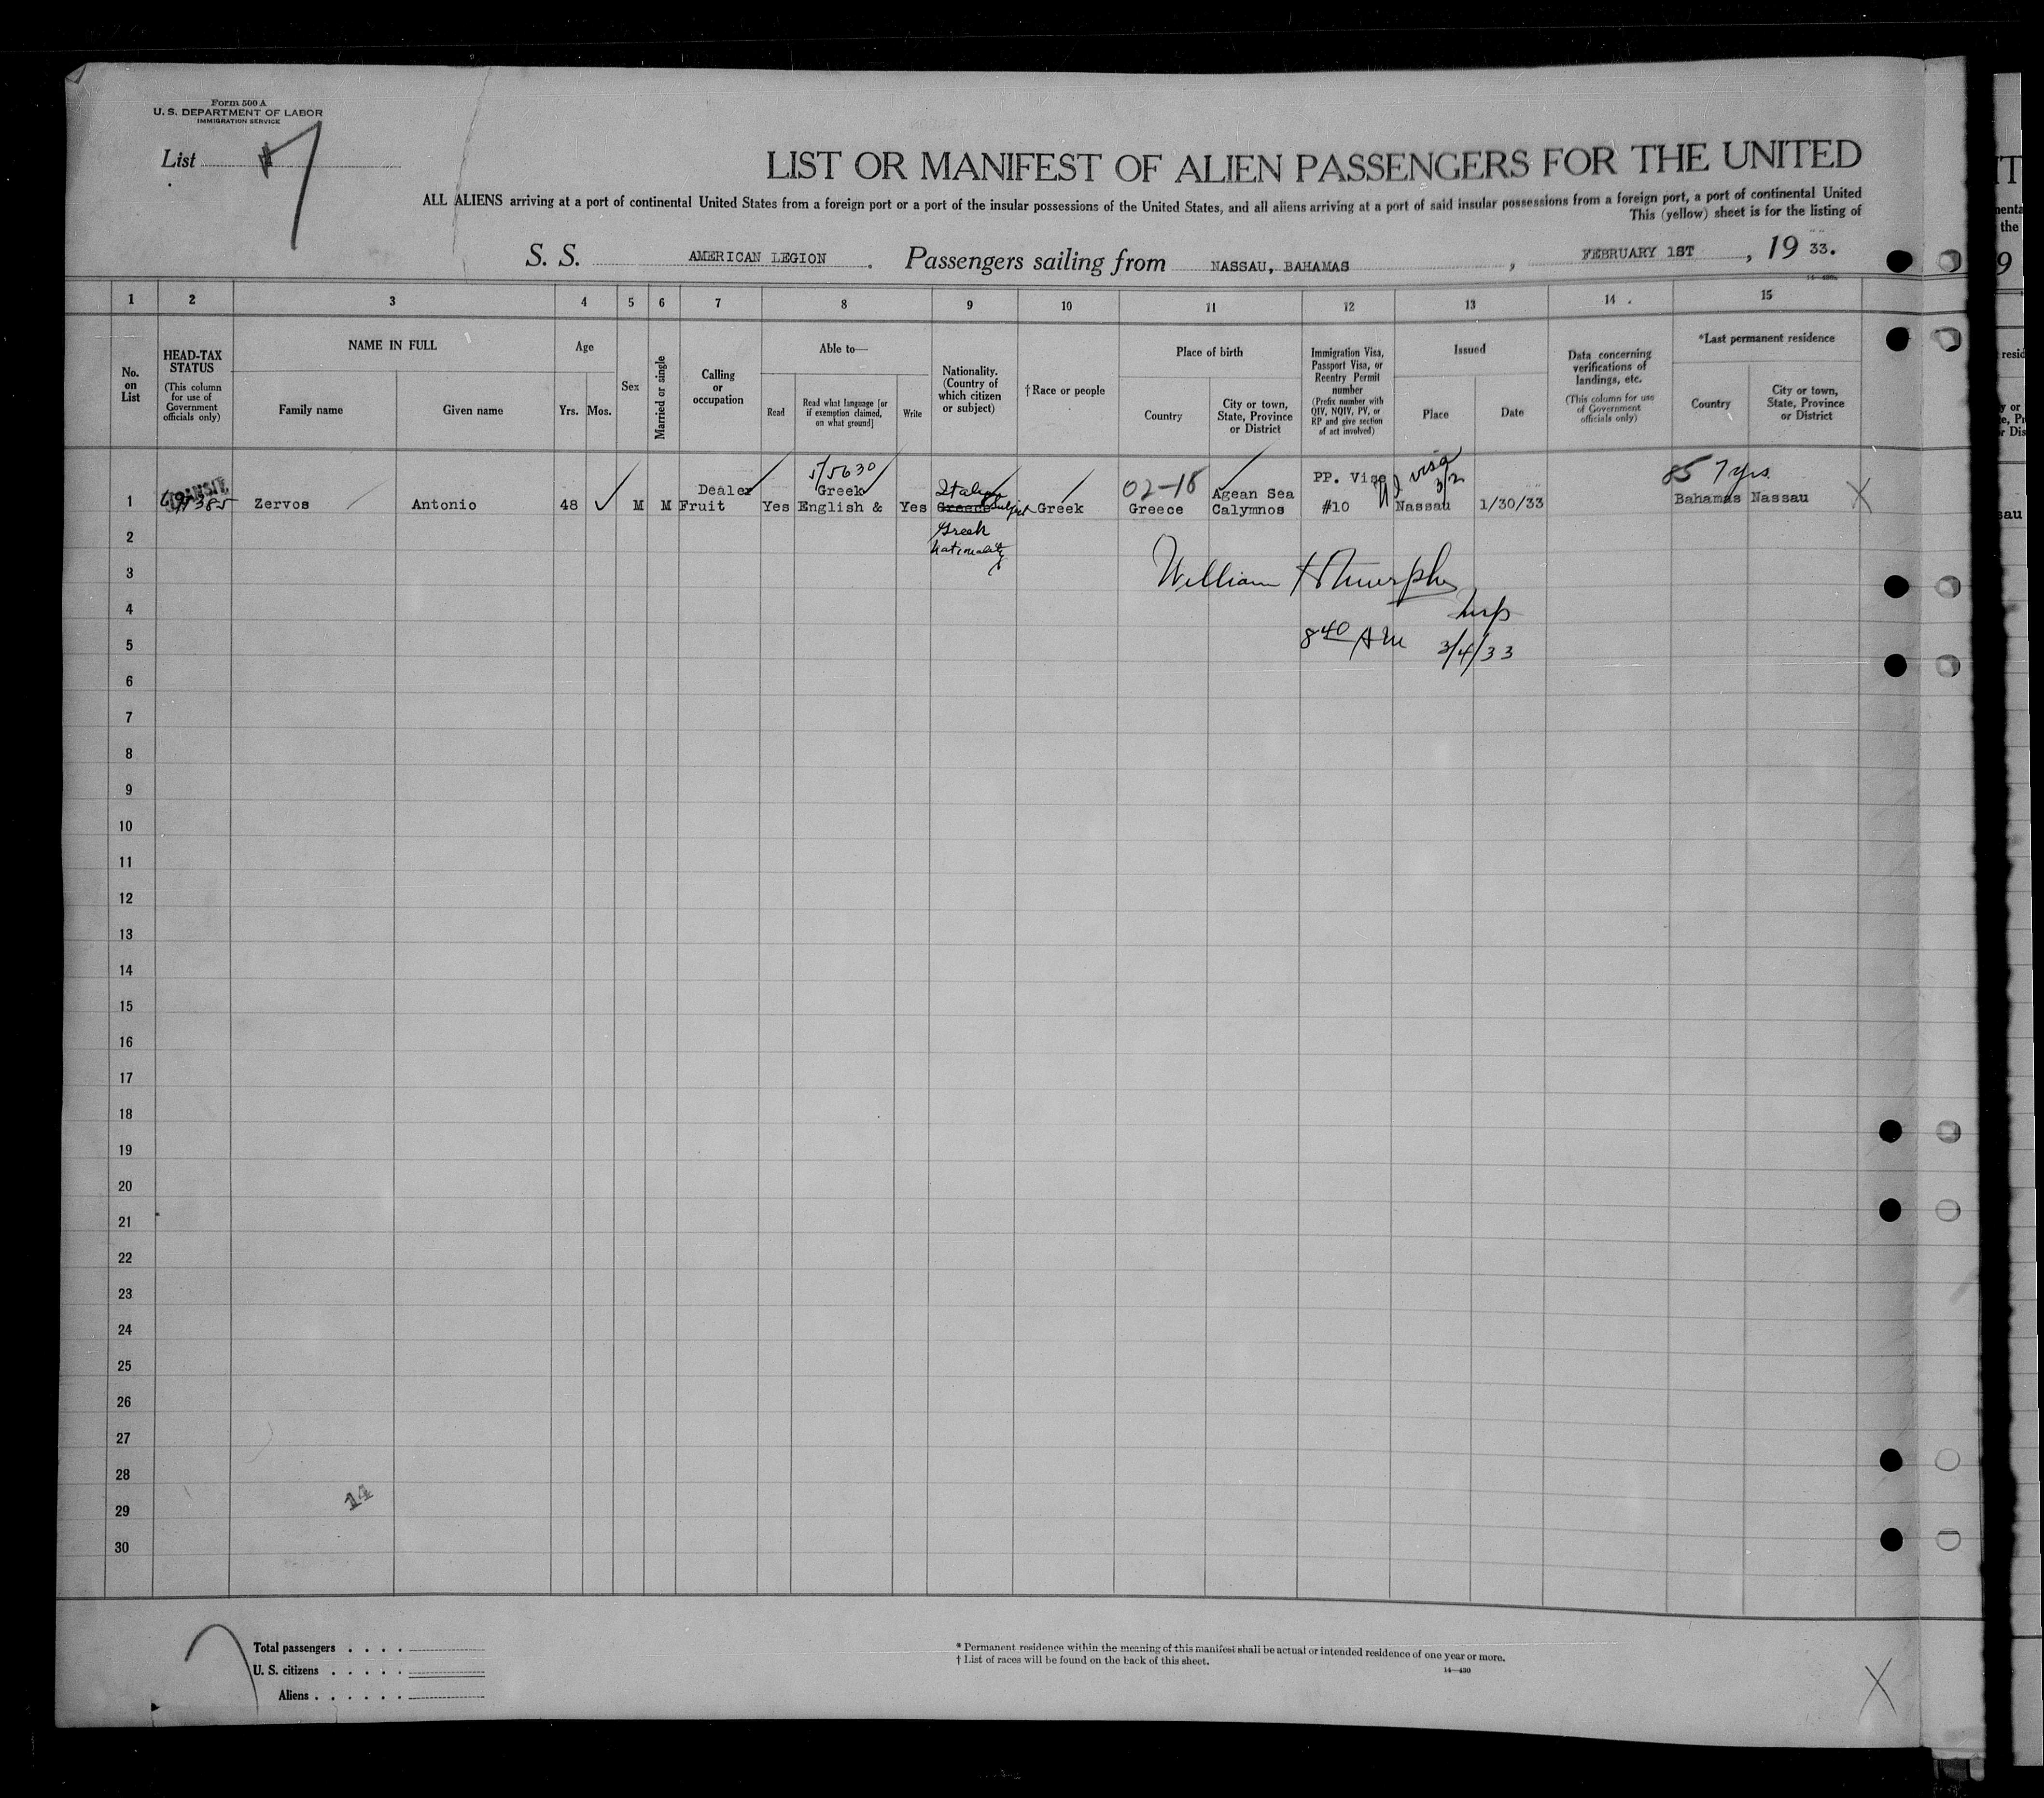 Form 500 A
U. S. DEPARTMENT OF LABOR
IMMIGRATION SERVICE
List 7
LIST OR MANIFEST OF ALIEN PASSENGERS FOR THE UNITED
ALL ALIENS arriving at a port of continental United States from a foreign port or a port of the insular possessions of the United States, and all aliens arriving at a port of said insular possessions from a foreign port, a port of continental United
This (yellow) sheet is for the listing of
S. S. AMERICAN LEGION . Passengers sailing from NASSAU, BAHAMAS , FEBRUARY 1ST , 19 33.
14—430
1 2 3 4 5 6 7 8 9 10 11 12 13 14 15
No. on List
HEAD-TAX STATUS
(This column for use of Government officials only)
NAME IN FULL
Family name
Given name
Age
Yrs. Mos.
Sex
Married or single
Calling or occupation
Able to—
Read
Read what language [or if exemption claimed, on what ground]
Write
Nationality. (Country of which citizen or subject)
† Race or people
Place of birth
Country
City or town, State, Province or District
Immigration Visa, Passport Visa, or Reentry Permit number
(Prefix number with QIV, NQIV, PV, or RP and give section of act involved)
Issued
Place
Date
Data concerning verifications of landings, etc.
(This column for use of Government officials only)
*Last permanent residence
Country
City or town, State, Province or District
5/5630
02-18
visa
3/2
85 7 yrs.
TRANSIT
Dealer Greek Italian Agean Sea PP. Vise
1 Zervos Antonio 48 M M Fruit Yes English & Yes Greece Subject Greek Greece Calymnos #10 Nassau 1/30/33 Bahamas Nassau X
2 Greek
Nationality
3 William H Murphy
4 Insp
5 8 40 AM 3/4/33
6
7
8
9
10
11
12
13
14
15
16
17
18
19
20
21
22
23
24
25
26
27
28
14
29
30
Total passengers . . . .
U. S. citizens . . . . .
Aliens . . . . . .
* Permanent residence within the meaning of this manifest shall be actual or intended residence of one year or more.
† List of races will be found on the back of this sheet.
14—430
X